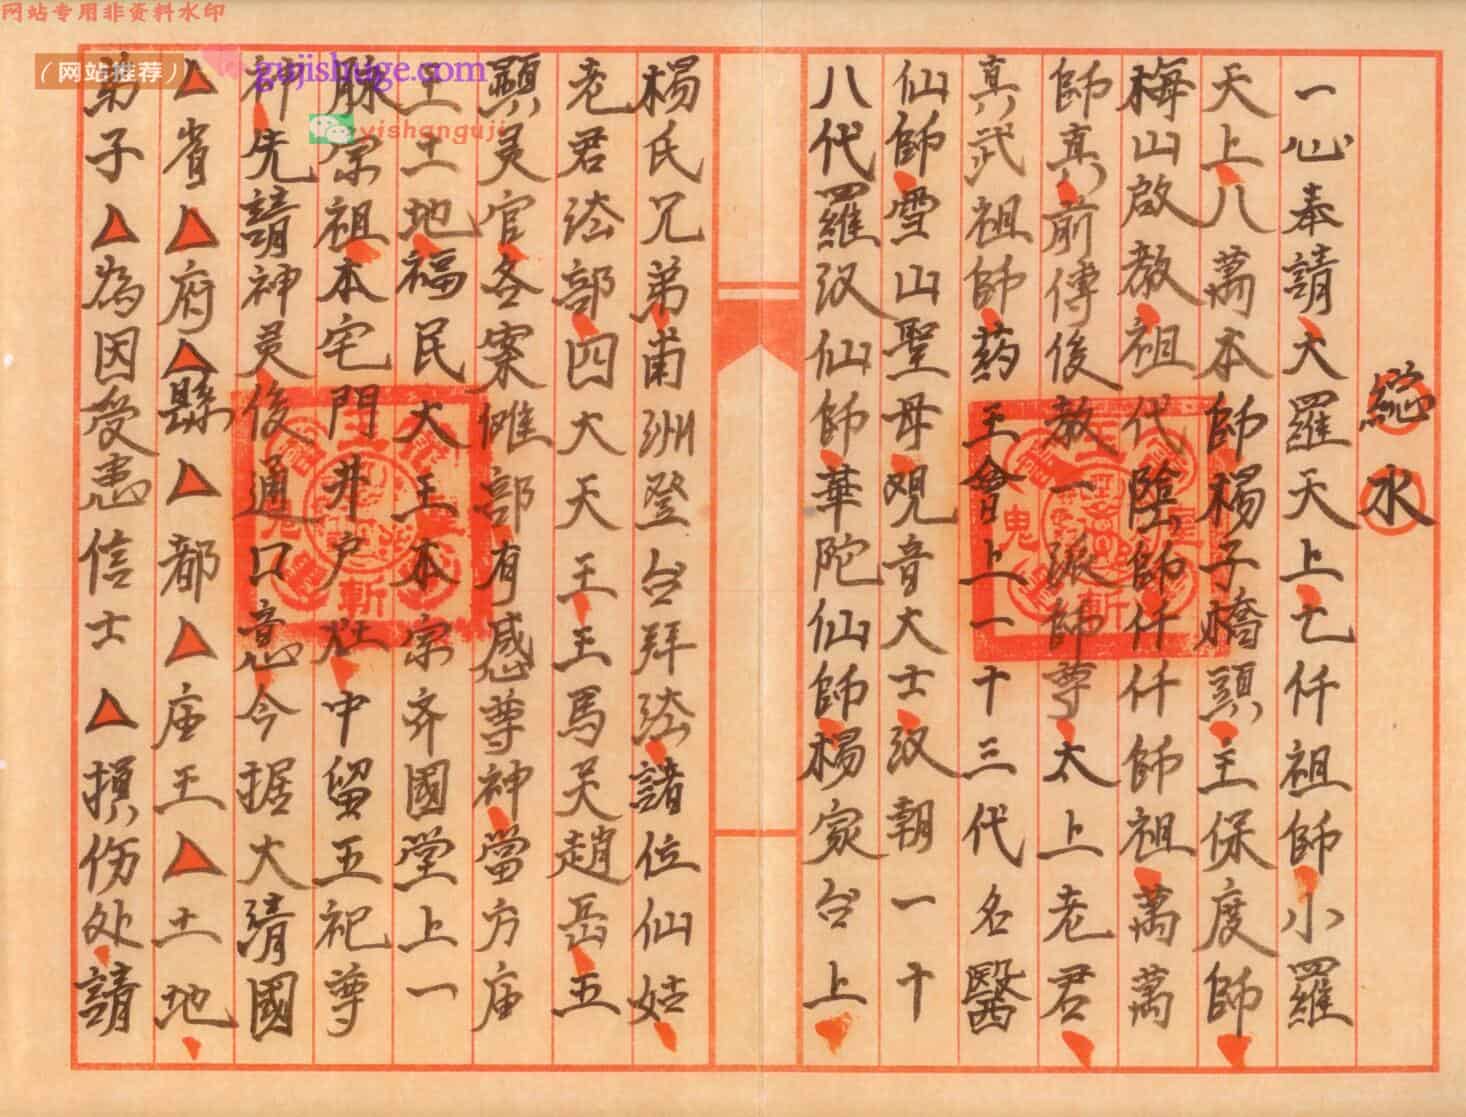 縂水
一心奉請大羅天上亡仟祖師小羅
天上八萬本師楊子橋頭主保度師
梅山啟教祖代陰師仟仟師祖萬萬
師真前傳後教一派師尊太上老君
真武祖師药王會上一十三代名醫
仙師雪山聖母观音大士汉朝一十
八代羅汉仙師華陀仙師楊家台上
楊氏兄弟甫洲登台拜法諸位仙姑
老君法部四大天王王馬灵趙岳五
顕灵官各案傩部有感尊神當方庙
王土地福民大王本宗齐國堂上一
脉宗祖本宅門井户灶中留五祀尊
神先請神灵後通口意今据大清國
△省△府△縣△都△庙王△土地
弟子△為因受患信士△損伤处請
网站专用非资料水印
（网站推荐）
gujishuge.com
yishanguji